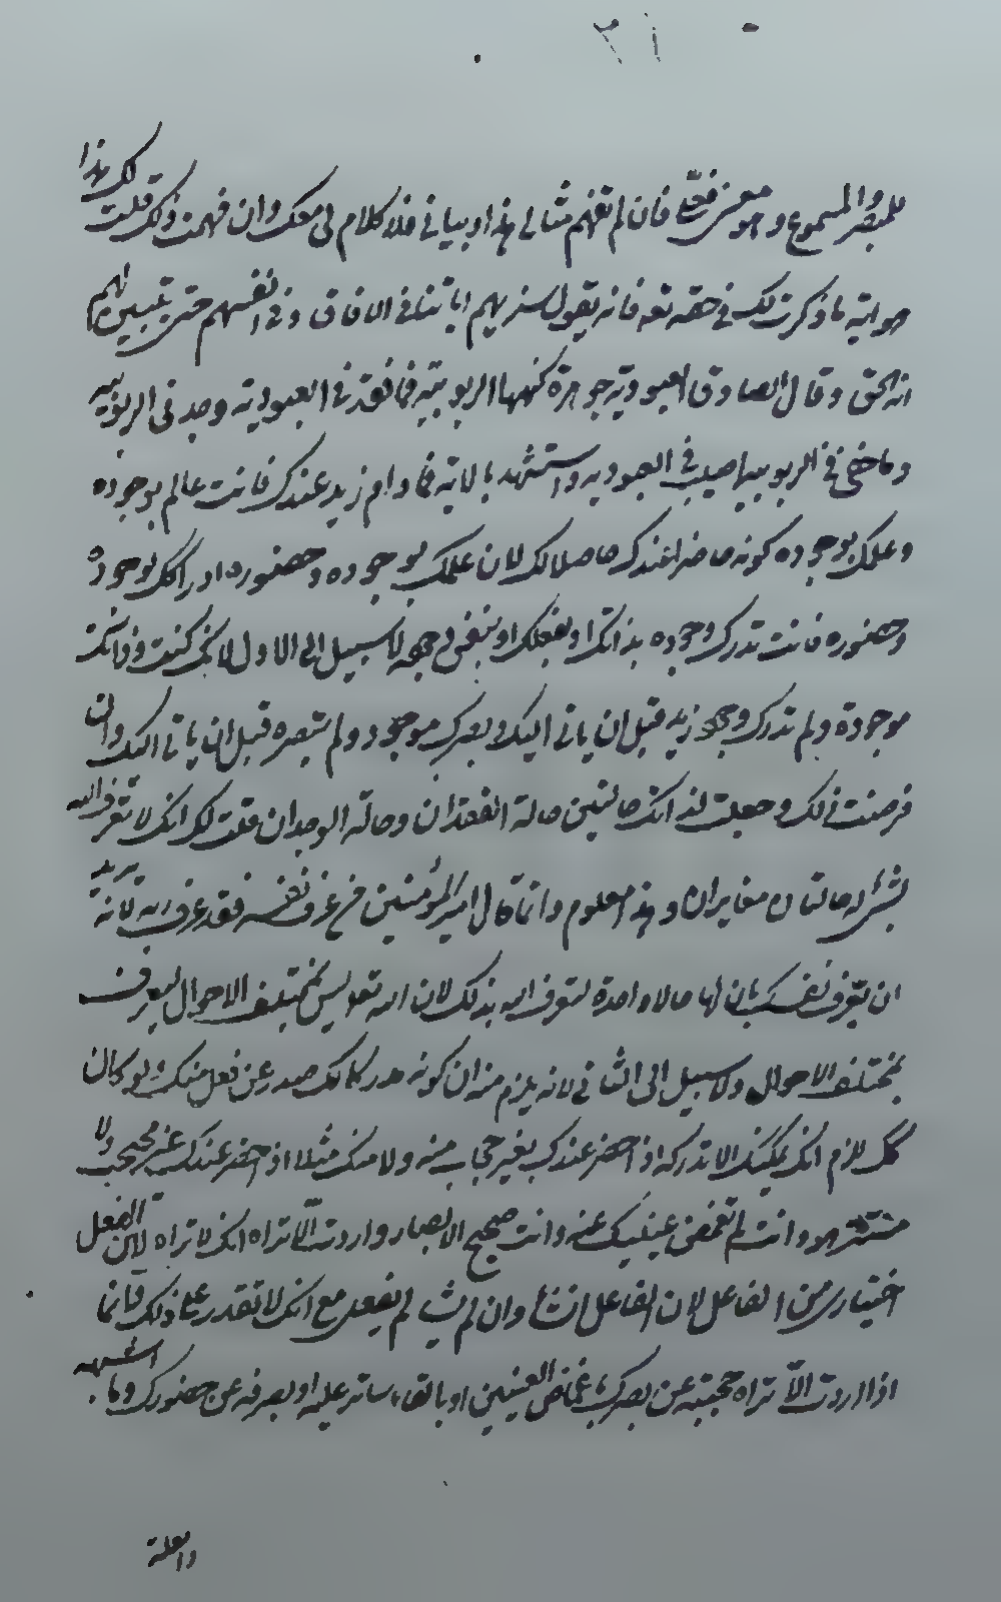 ٢١
للمبصر والمسموع وهو معنى فعلي فان لم تفهم مثالي هذا وبياني فلا كلام لي معك وان فهمت ذلك قلت لك هذا
هو اية ما ذكرت لك في حقه تعه فانه يقول سنريهم اياتنا في الافاق وفي انفسهم حتى يتبين لهم
انه الحق وقال الصادق العبودية جوهرة كنهها الربوبية فما فقد في العبودية وجد في الربوبية
وما خفي في الربوبية اصيب في العبودية واستشهد بالاية فما دام زيد عندك فانت عالم بوجوده
وعلمك بوجوده كونه حاضرا عندك حاصلا لك لان علمك بوجوده وحضوره ادراكك لوجوده
وحضوره فانت تدرك وجوده بذاتك او بفعلك او بنفس وجوده لا سبيل الى الاول لانك كنت وذاتك
موجودة ولم تدرك وجود زيد قبل ان ياتي اليك وبصرك موجود ولم تبصره قبل ان ياتي اليك وان
فرضت ذلك وجعلت لذاتك حالتين حالة الفقدان وحالة الوجدان قلت لك انك لا تعرف الله
بشيء له حالتان متغايران وهذا معلوم وانما قال امير المؤمنين من عرف نفسه فقد عرف ربه لانه يريد
ان تعرف نفسك بان لها حالا واحدة لتعرف الله بذلك لان الله تعه ليس بمختلف الاحوال ليعرف
بمختلف الاحوال ولا سبيل الى الثاني لانه يلزم منه ان كونه مدركا لك صدر عن فعل منك ولو كان
كك لازم انك يمكنك الا تدركه اذا حضر عندك بغير حجاب منه ولا منك مثلا اذا حضر عندك غير محتجب ولا
مستتر وانت لم تغمض عينيك عنه وانت صحيح الابصار واردت الا تراه انك لا تراه لان الفعل
اختياري من الفاعل لان الفاعل ان شاء وان لم يشأ لم يفعل مع انك لا تقدر على ذلك فانما
اذا اردت الا تراه حجبته عن بصرك باغماض العينين او بالقاء ساتر عليه او بصرفه عن حضورك وما اشبهه
والعلة